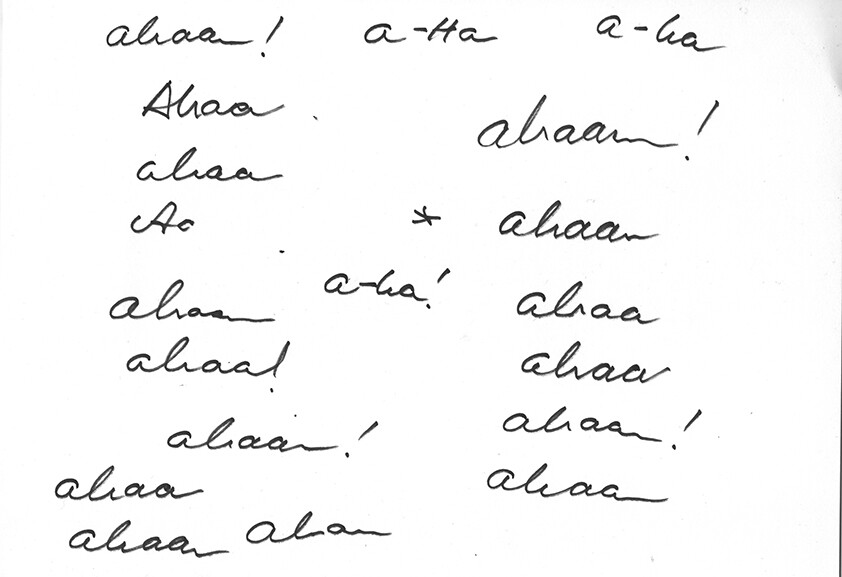 ahaan! a-Ha a-ha
Ahaa
ahaan!
ahaa
Aa
* ahaan
a-ha!
ahaan
ahaa
ahaa!
ahaa
ahaan!
ahaan!
ahaa
ahaan
ahaan ahan